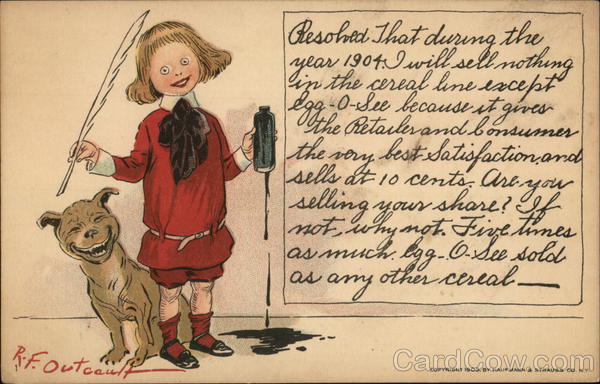 Resolved That during the
year 1904 I will sell nothing
in the cereal line except
Egg-O-See because it gives
the Retailer and Consumer
the very best Satisfaction, and
sells at 10 cents. Are you
selling your share? If
not, why not. Five times
as much Egg-O-See sold
as any other cereal —
R.F. Outcault
COPYRIGHT 1903 BY KAUFMANN & STRAUSS CO. N.Y.
CardCow.com